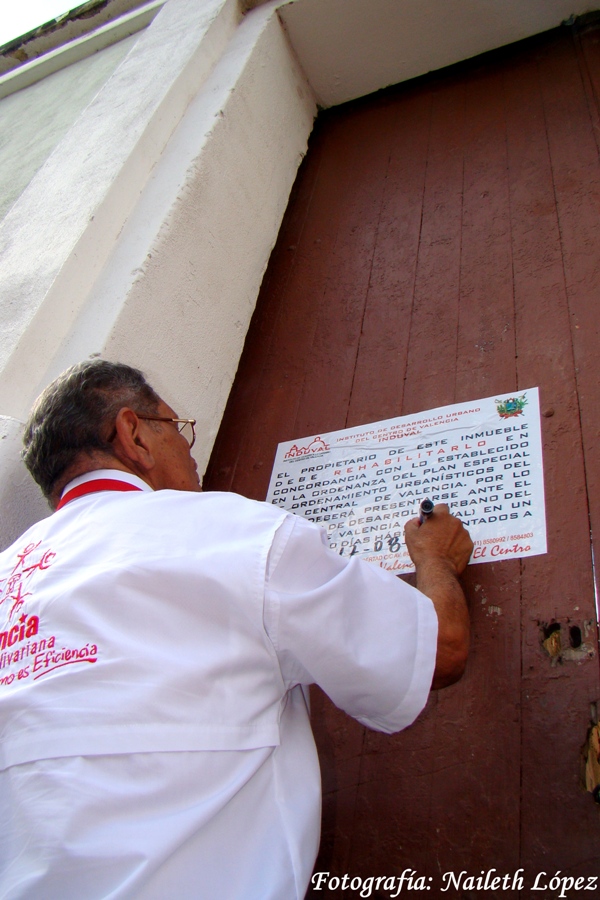 INSTITUTO DE DESARROLLO URBANO
DEL CENTRO DE VALENCIA
INDUVAL
INDUVAL
EL PROPIETARIO DE ESTE INMUEBLE
DEBE REHABILITARLO EN
CONCORDANCIA CON LO ESTABLECIDO
EN LA ORDENANZA DEL PLAN ESPECIAL
DE ORDENAMIENTO URBANÍSTICOS DEL
CENTRAL DE VALENCIA. POR LO
PRESENTARSE ANTE EL
DE DESARROLLO URBANO DEL
DE VALENCIA EN UN
DÍAS CONTADOS A
12-08
8580992 / 8584803
El Centro
ncia
livariana
es Eficiencia
Fotografía: Naileth López